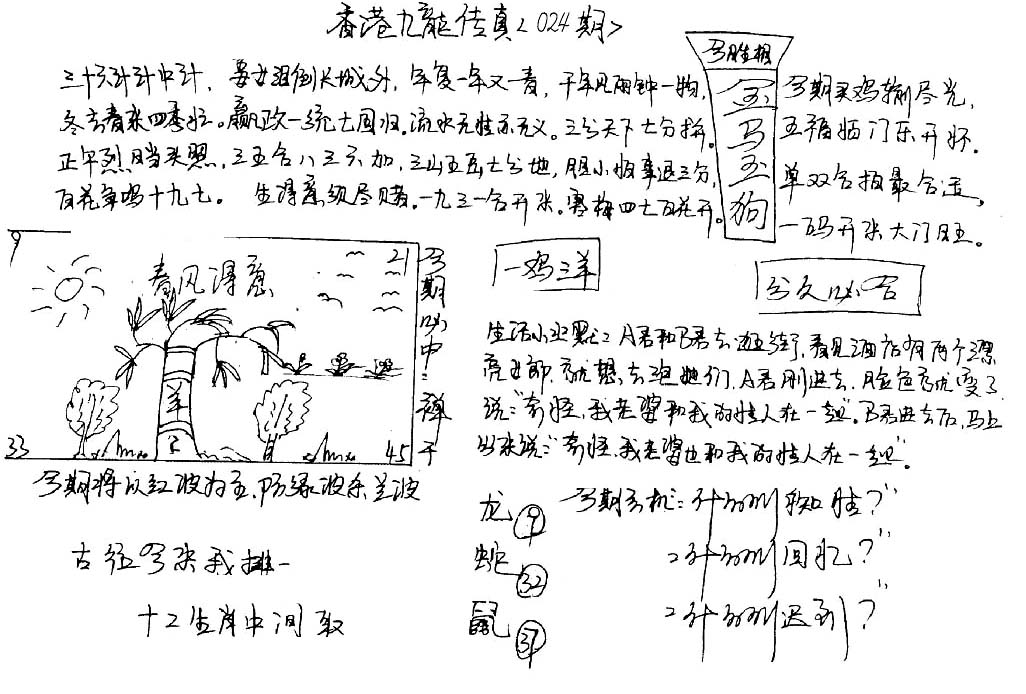 香港九龍传真<024期>
三十六计计中计，姜女泪倒长城外，年复一年又一青，千年见面钟一物，
冬去春来四季红。赢政一统七国归。流水无情亦无义。三分天下七分拼。
正午烈日当头照，三五合八三六加，三山五岳七分地，胆小怕事退三分，
百花争鸣十九七。 生得意须尽欢。一九三一合开张。寒梅四七百花开。
今期生相
金
马
玉
狗
今期买鸡输尽光，
五福临门乐开怀。
单双合拍最合适。
一码开张大门旺。
9
21
春风得意
羊
33
45
今期必中：
一鸡三羊
分久必合
生活小幽默：A君和B君去逛街，看见酒店有两个漂
亮女郎，就想去泡她们，A君刚进去，脸色就变了
说："奇怪，我老婆和我的情人在一起"。B君进去后，马上
出来说："奇怪，我老婆也和我的情人在一起"。
今期将以红波为主，防绿波杀兰波
龙 9
蛇 32
鼠 37
今期玄机：
回忆？"
迟到？"
古往今来我排一
十二生肖中间取